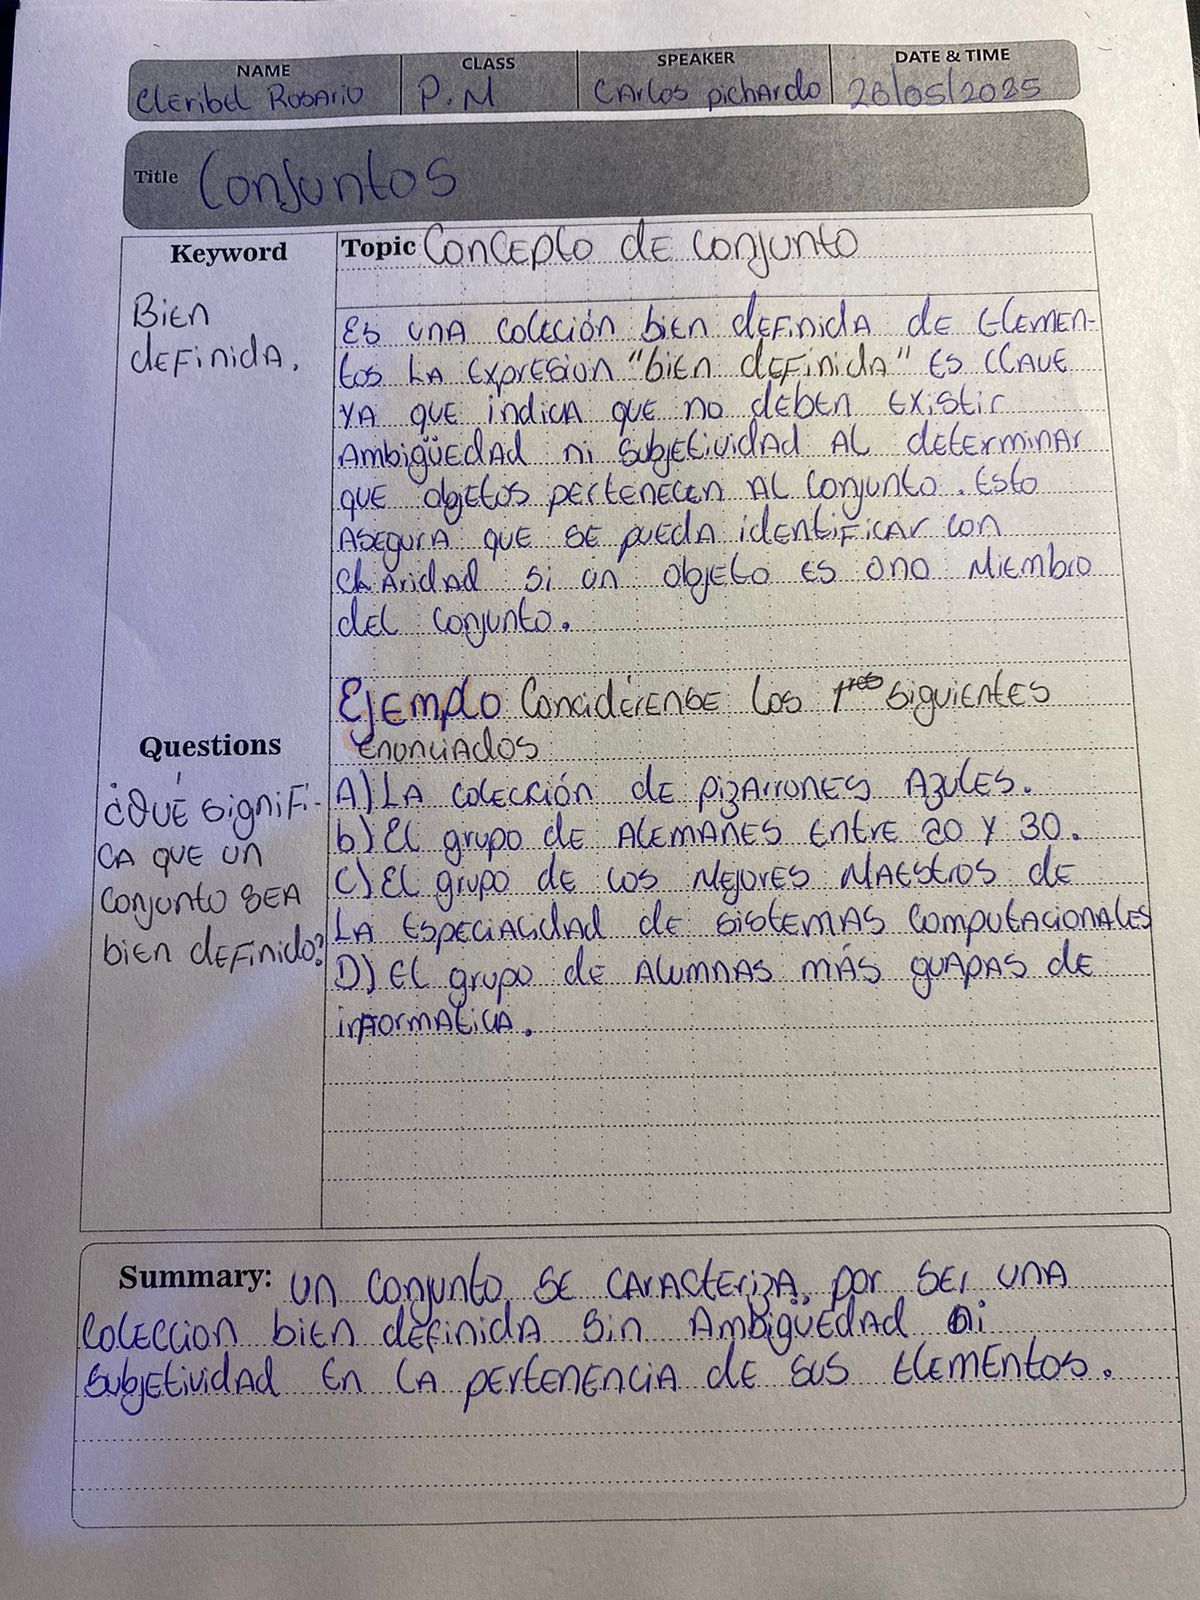 NAME CLASS SPEAKER DATE & TIME
Cleribel Rosario P.M Carlos pichardo 28/05/2025
Title Conjuntos
Keyword
Bien
definida.
Topic Concepto de conjunto
Es una coleción bien definida de elemen-
tos La expresion "bien definida" es clave
ya que indica que no deben existir
Ambigüedad ni subjetividad al determinar
que objetos pertenecen al conjunto. Esto
asegura que se pueda identificar con
claridad si un objeto es ono miembro
del conjunto.
Ejemplo Concidérense los siguientes
enunciados
A) La colección de pizarrones azules.
b) El grupo de Alemañes entre 20 y 30.
C) El grupo de los mejores maestros de
la especialidad de sistemas computacionales
D) El grupo de alumnas más guapas de
informatica.
Questions
¿Qué signifi-
ca que un
conjunto sea
bien definido?
Summary: Un conjunto se caracteriza, por ser una
coleccion bien definida sin Ambigüedad ni
subjetividad en la pertenencia de sus elementos.